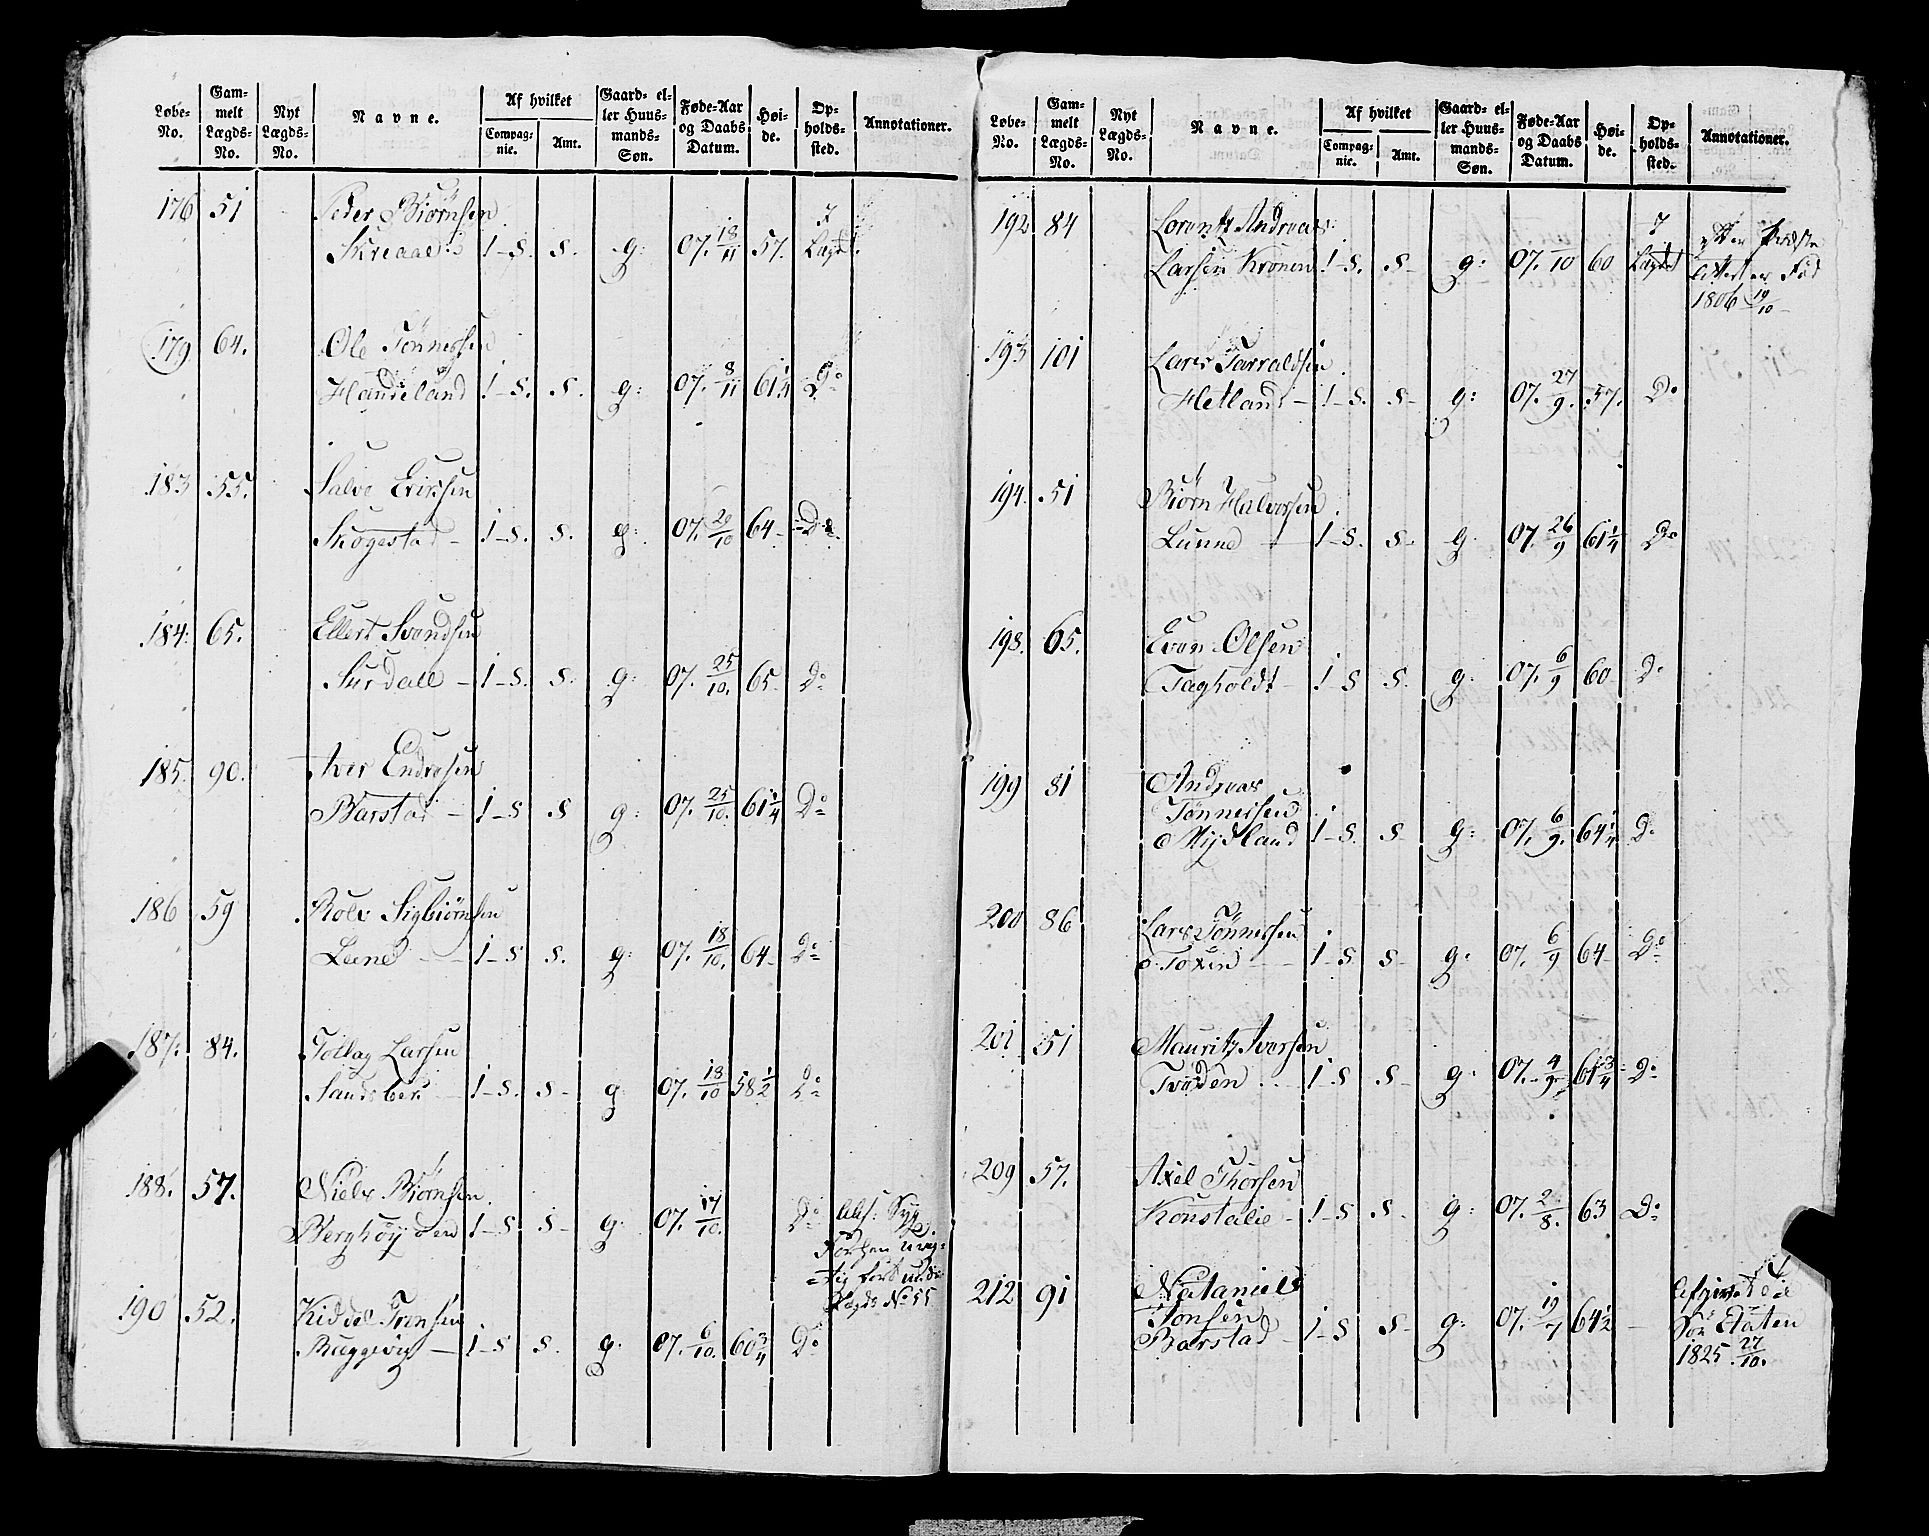 Løbe-No. Gammelt Lægds-No. Nyt Lægds-No. Navne. Af hvilket Compagnie. Amt. Gaard- eller Huusmands-Søn. Føde-Aar og Daabs Datum. Høide. Opholdssted. Annotationer.
176 51 Peder Biørnsen
Skreaae 1-S. S. g: 07. 18/11 57. I Lægd.
179 64. Ole Tönnessen
Handeland 1-S. S. g: 07. 8/11 61 1/4 Do
183 55. Salve Erirssen
Skogestad - 1-S. S. g: 07. 20/10 64- Do
184: 65. Ellert Svendsen
Surdall - 1-S. S. g: 07. 25/10. 65- Do
185. 90. Iver Endresen
Barstad - 1-S S g: 07. 25/10. 61 1/4 Do
186 59 Rolv Sigbiørnsen
Leene - 1-S S. g: 07. 18/10. 64- Do
187. 84. Tollag Larsen
Sandsber. 1-S. S- g 07. 18/10 58 1/2 Do
188. 57. Niels Biörnsen.
Berghöyden 1-S S- g: 07. 17/10. Do
Forhen urig-
-tig ført under
Lægds No 55
190 52. Kiddel Trensen
Ruggevig - 1-S S. g: 07. 6/10. 60 3/4 Do
Løbe-No. Gammelt Lægds-No. Nyt Lægds-No. Navne. Af hvilket Compagnie. Amt. Gaard- eller Huusmands-Søn. Føde-Aar og Daabs Datum. Høide. Opholdssted. Annotationer.
192 84 Lorentz Andreas
Larsen Kronen 1-S. S- g: 07. 10 60 I Lægdet
efter Præste
er Fød
1806 19/10-
193 101 Lars Tarraldsen
Hetland - 1-S. S- g: 07. 27/9. 57. Do
194. 51 Biörn Halvorsen.
Lunne - 1-S. S- g: 07. 26/9 61 1/4 Do
198. 65. Even Olsen
Tagholdt - 1-S S. g: 07. 6/9 60 Do
199 81 Andreas
Tönnessen
Mydland 1-S. S- g: 07. 6/9. 64 1/4 Do
200 86 Lars Tönnessen
Toxen - 1-S S- g: 07. 6/9 64- Do
201 51 Mauritz Iversen
Tvöden 1-S S- g: 07. 4/9 61 3/4 Do
209 57. Axel Thorsen
Konstalie - 1-S S. g: 07. 2/8. 63 Do
212 91 Nataniels
Jonsen
Barstad - 1-S S- g: 07. 19/7 64 1/2 -
Afgivet til
Søe Etaten
1825 27/10.